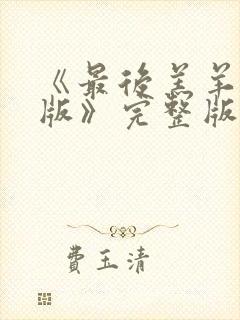 《最后羔羊
版》完整版
费玉清